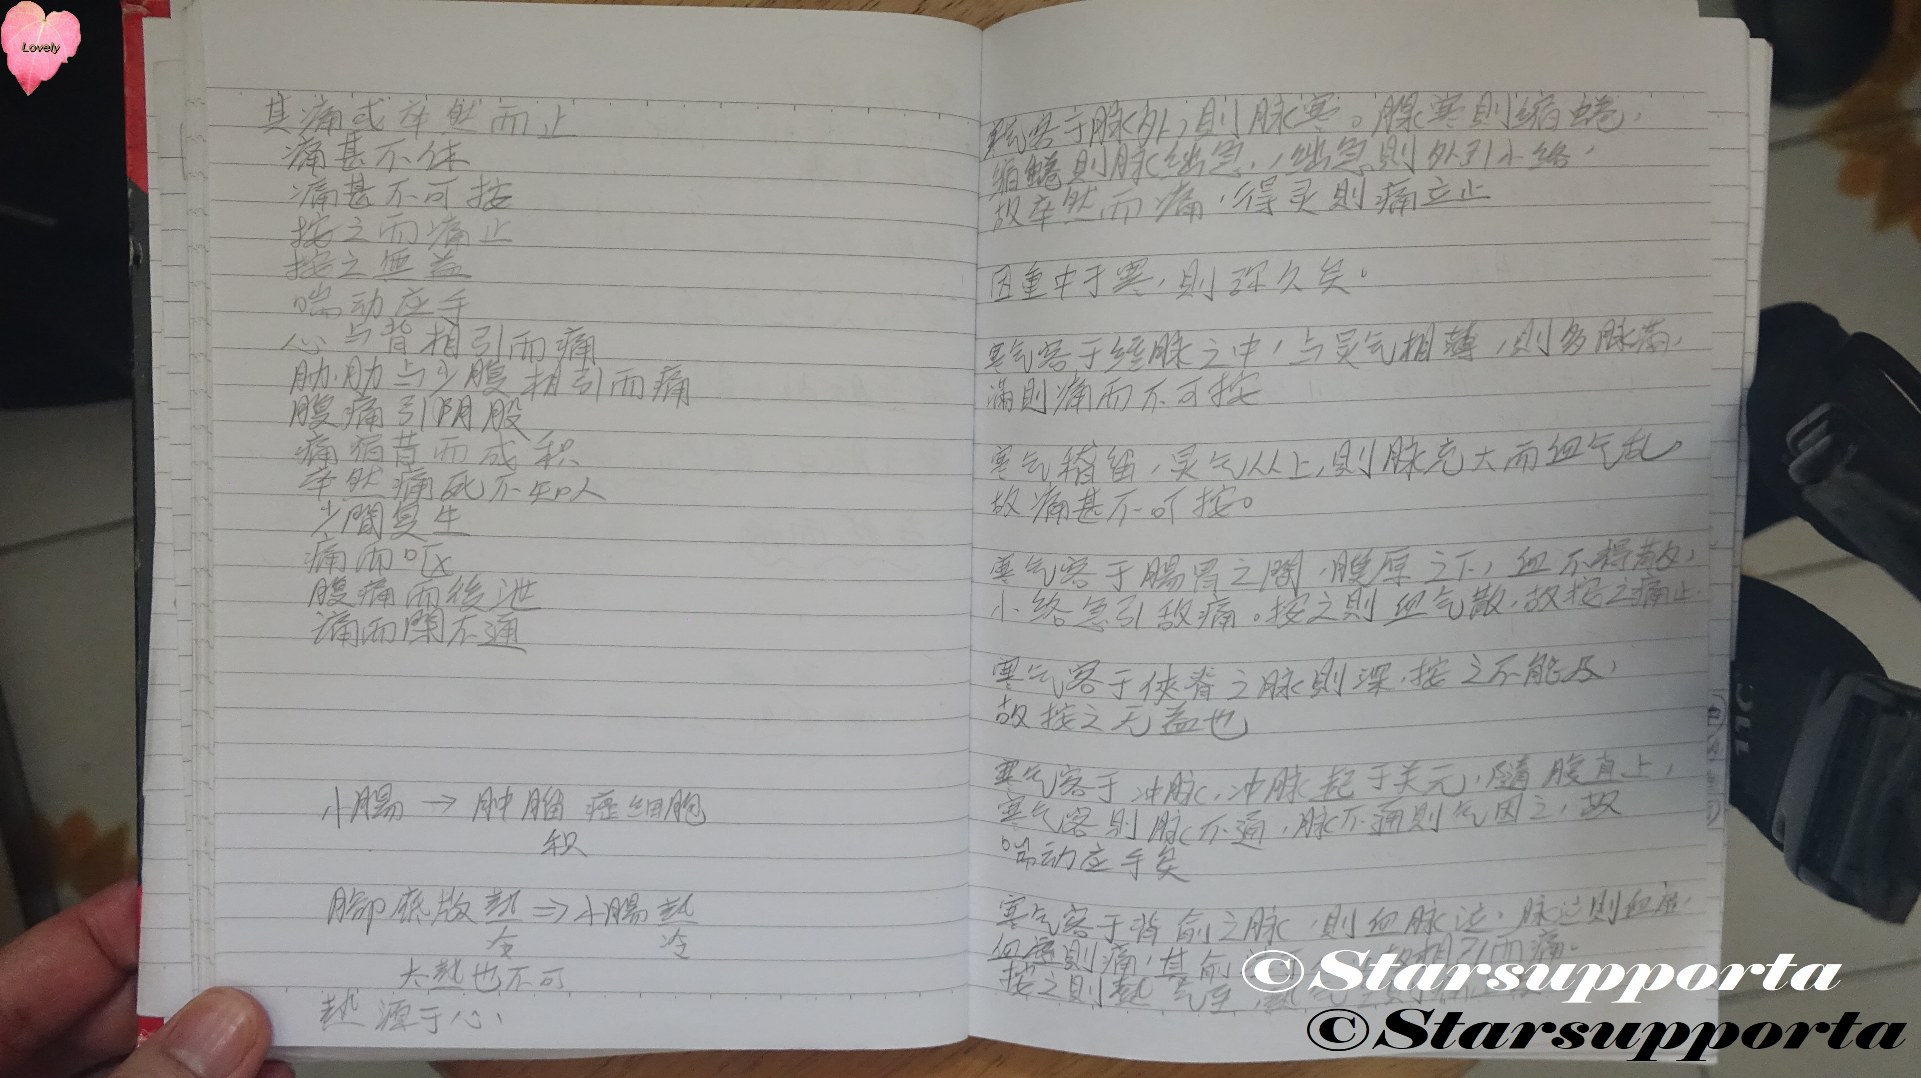 Lovely
其痛或卒然而止
痛甚不休
痛甚不可按
按之而痛止
按之無益
喘动应手
心与背相引而痛
肋肋与少腹相引而痛
腹痛引阴股
痛宿昔而成积
卒然痛死不知人
少間复生
痛而呕
腹痛而後泄
痛而閉不通
小腸 → 肿腦 癌細胞
积
腳底散熱 ⇒ 小腸熱
冷 冷
大熱也不可
熱源于心
客于脉外，則脉寒。脉寒則缩蜷，
缩蜷則脉绌急，绌急則外引小络，
故卒然而痛，得炅則痛立止
因重中于寒，則 久矣。
寒气客于經脉之中，与炅气相薄，則 脉满，
满則痛而不可按
寒气稽留，炅气从上，則脉充大而血气乱
故痛甚不可按。
寒气客于腸胃之間，膜原之下，血不得散，
小络急引故痛。按之則血气散，故按之痛止。
寒气客于侠脊之脉則深，按之不能及，
故按之无益也
寒气客于冲脉，冲脉起于关元，隨腹直上，
寒气客則脉不通，脉不通則气因之，故
喘动应手矣
寒气客于背俞之脉，則血脉泣，脉泣則血虚，
血虚則痛，其俞 故相引而痛。
按之則熱气至，熱气
©Starsupporta
©Starsupporta